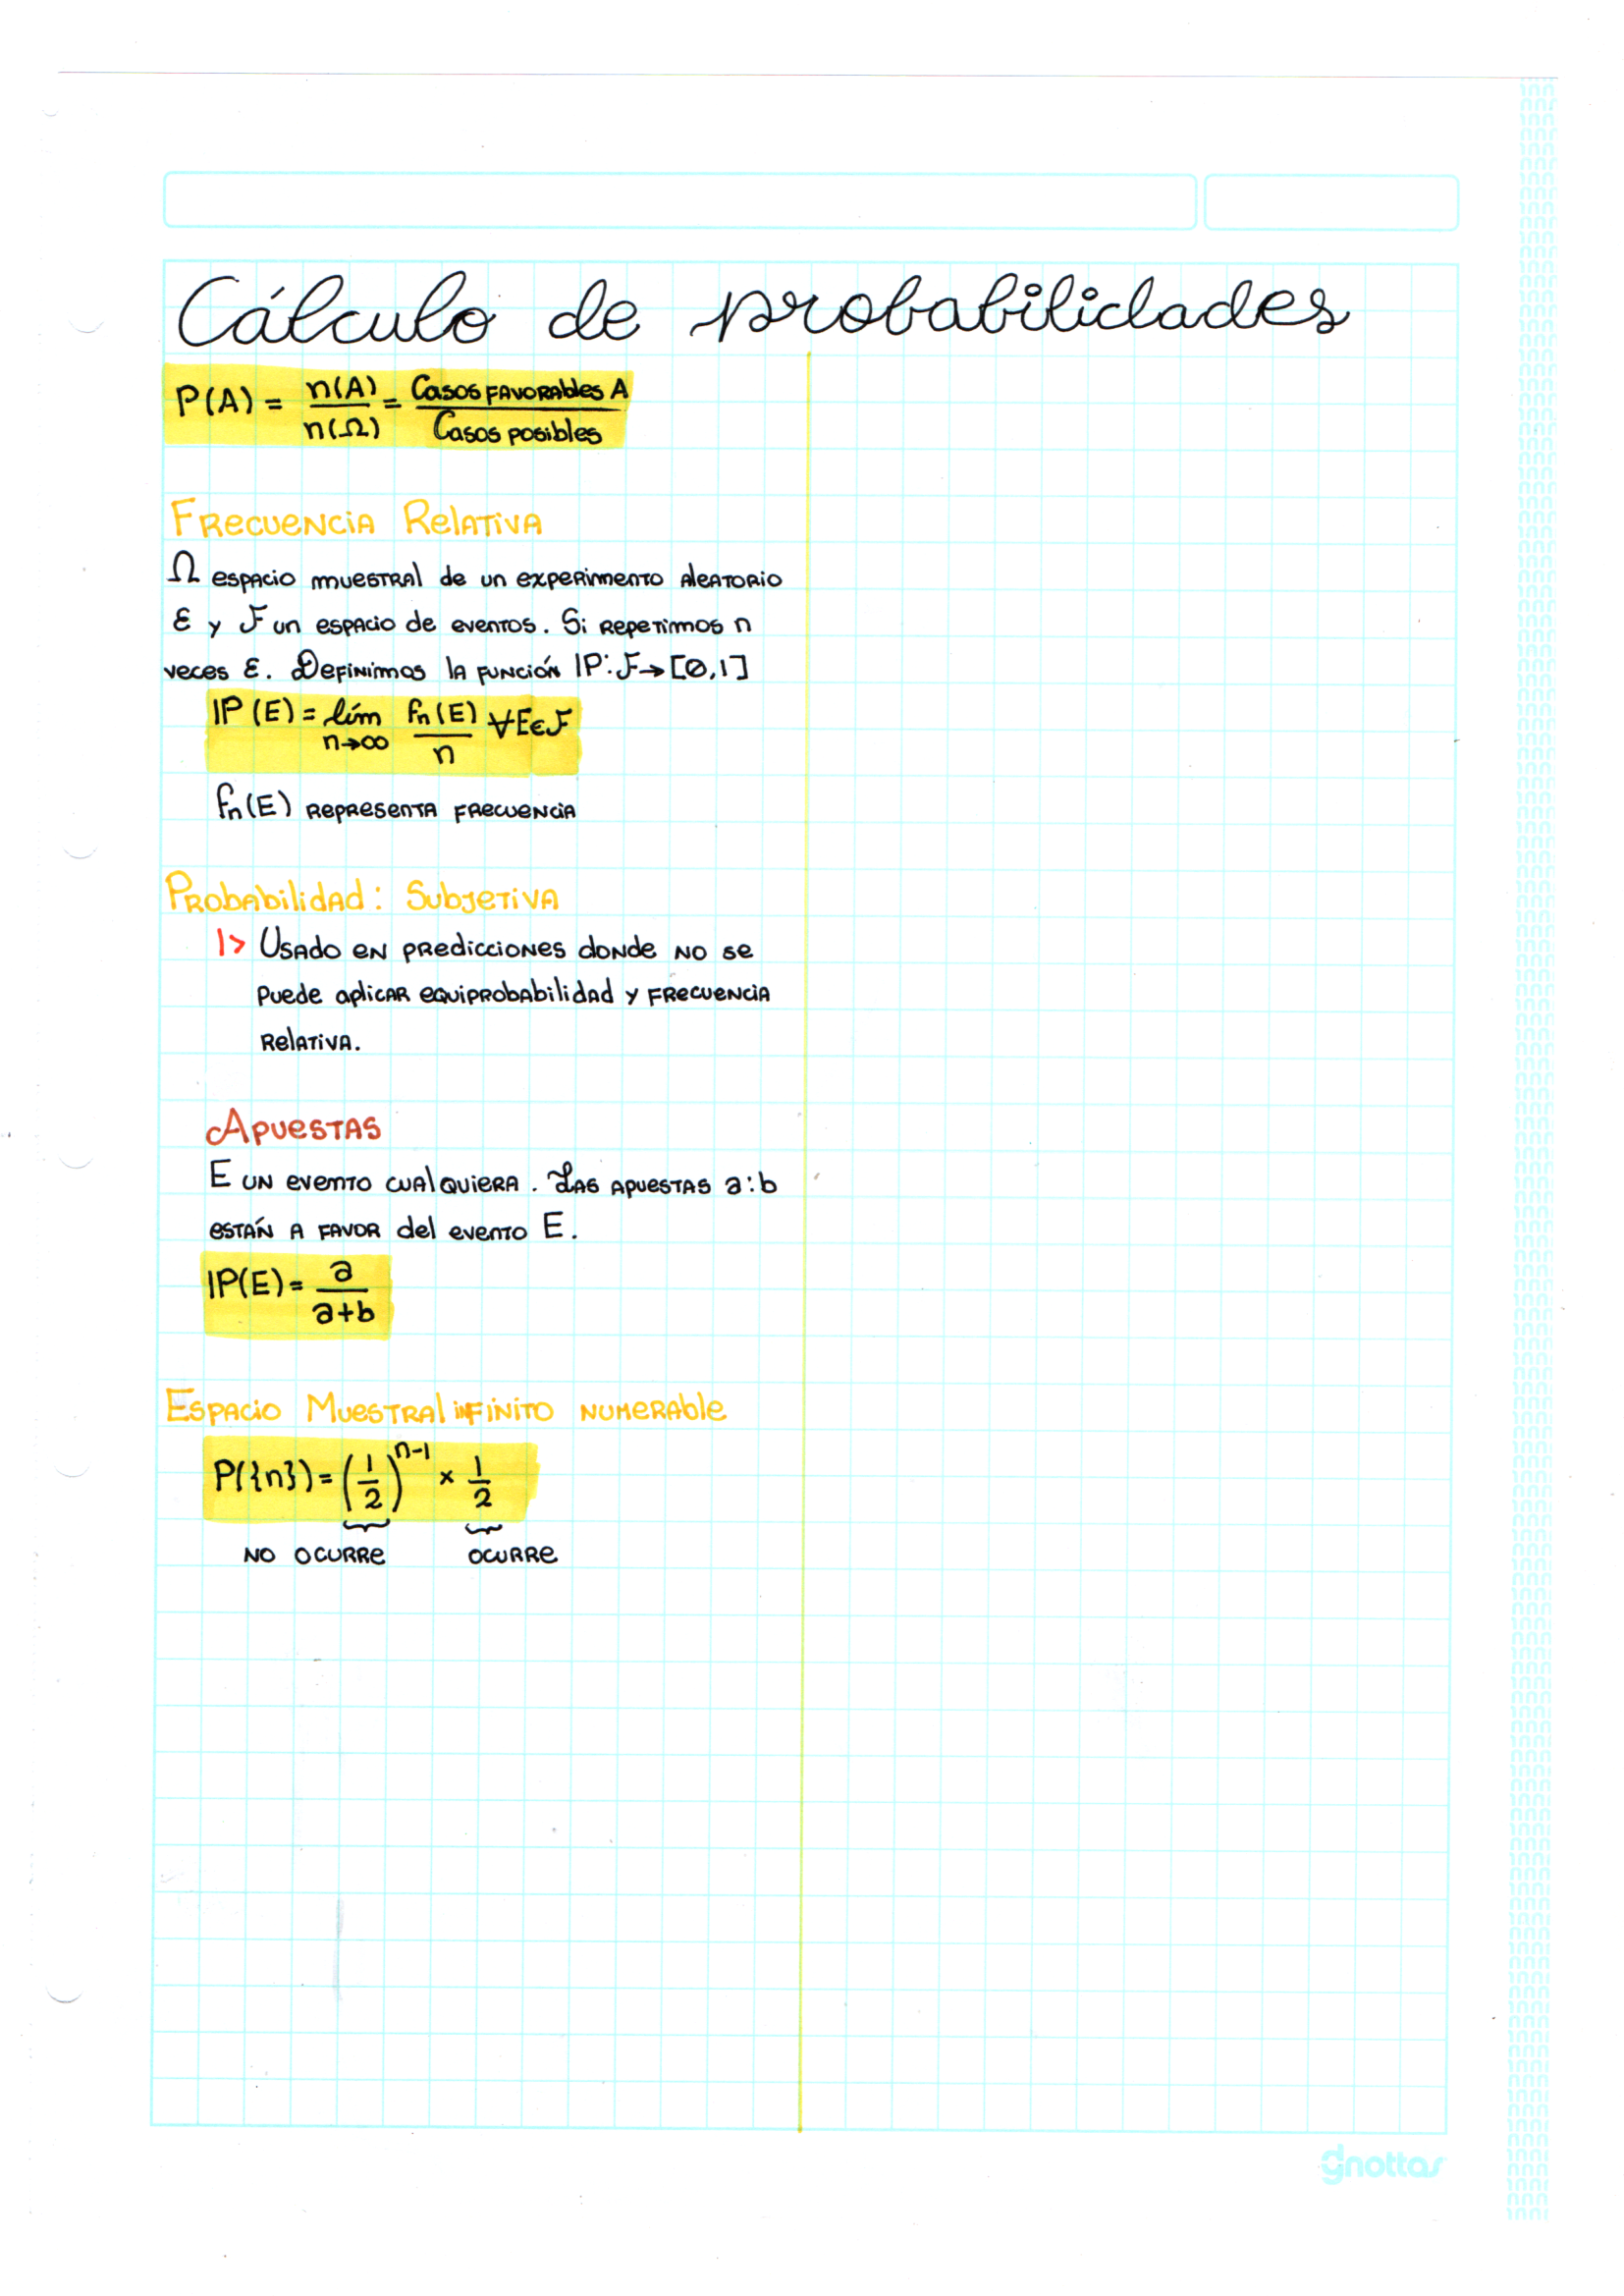 Cálculo de probabilidades
P(A) = n(A)/n(Ω) = Casos favorables A/Casos posibles
Frecuencia Relativa
Ω espacio muestral de un experimento aleatorio
ε y F un espacio de eventos. Si repetimos n
veces ε. Definimos la función IP: F→[0,1]
IP(E) = lím n→∞ fn(E)/n ∀E∈F
fn(E) representa frecuencia
Probabilidad: Subjetiva
1> Usado en predicciones donde no se
puede aplicar equiprobabilidad y frecuencia
relativa.
Apuestas
E un evento cualquiera. Las apuestas a:b
están a favor del evento E.
IP(E) = a/a+b
Espacio Muestral infinito numerable
P({n}) = (1/2)^n-1 × 1/2
no ocurre ocurre
gnottas